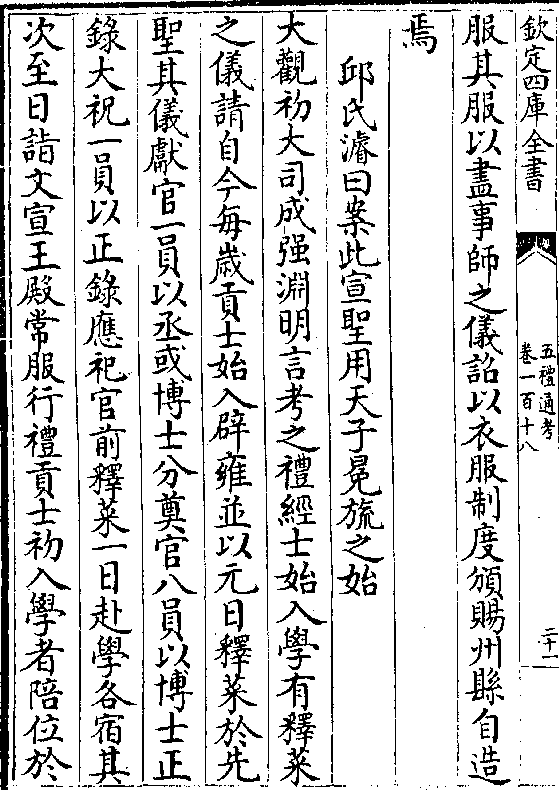 欽定四庫全書
五禮通考
卷一百十八
二十一
服其服以盡事師之儀詔以衣服制度頒賜州縣自造
焉
邱氏濬曰案此宣聖用天子冕旒之始
大觀初大司成强淵明言考之禮經士始入學有釋菜
之儀請自今每歲貢士始入辟雍並以元日釋菜於先
聖其儀獻官一員以丞或博士分奠官八員以博士正
錄大祝一員以正錄應祀官前釋菜一日赴學各宿其
次至日詣文宣王殿常服行禮貢士初入學者陪位於